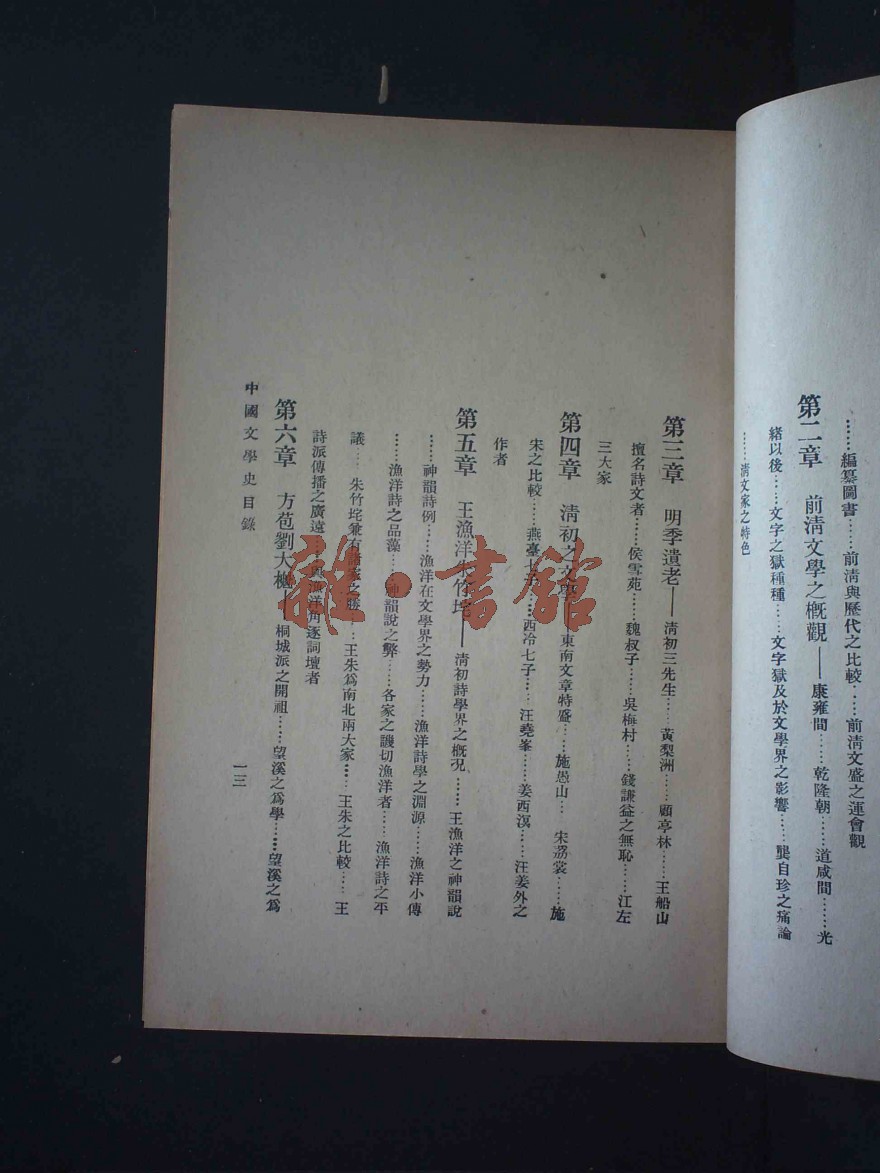 ……編纂圖書……前淸與歷代之比較……前淸文盛之運會觀
第二章　前淸文學之槪觀——康雍間……乾隆朝……道咸間……光
緒以後……文字之獄種種……文字獄及於文學界之影響……龔自珍之痛論
……淸文家之特色
第三章　明季遺老——淸初三先生……黃梨洲……顧亭林……王船山
擅名詩文者……侯雪苑……魏叔子……吳梅村……錢謙益之無恥……江左
三大家
第四章　淸初之文學——東南文章特盛……施愚山……宋荔裳……施
宋之比較……燕臺十子……西冷七子……汪堯峯……姜西溟……汪姜外之
作者
第五章　王漁洋朱竹垞——淸初詩學界之槪況……王漁洋之神韻說
……神韻詩例……漁洋在文學界之勢力……漁洋詩學之淵源……漁洋小傳
……漁洋詩之品藻……神韻說之弊……各家之譏切漁洋者……漁洋詩之平
議……朱竹垞兼有諸家之勝……王朱爲南北兩大家……王朱之比較……王
詩派傳播之廣遠……與漁洋角逐詞壇者
第六章　方苞劉大櫆——桐城派之開祖……望溪之爲學……望溪之爲
中國文學史目錄
一三
雜·書館